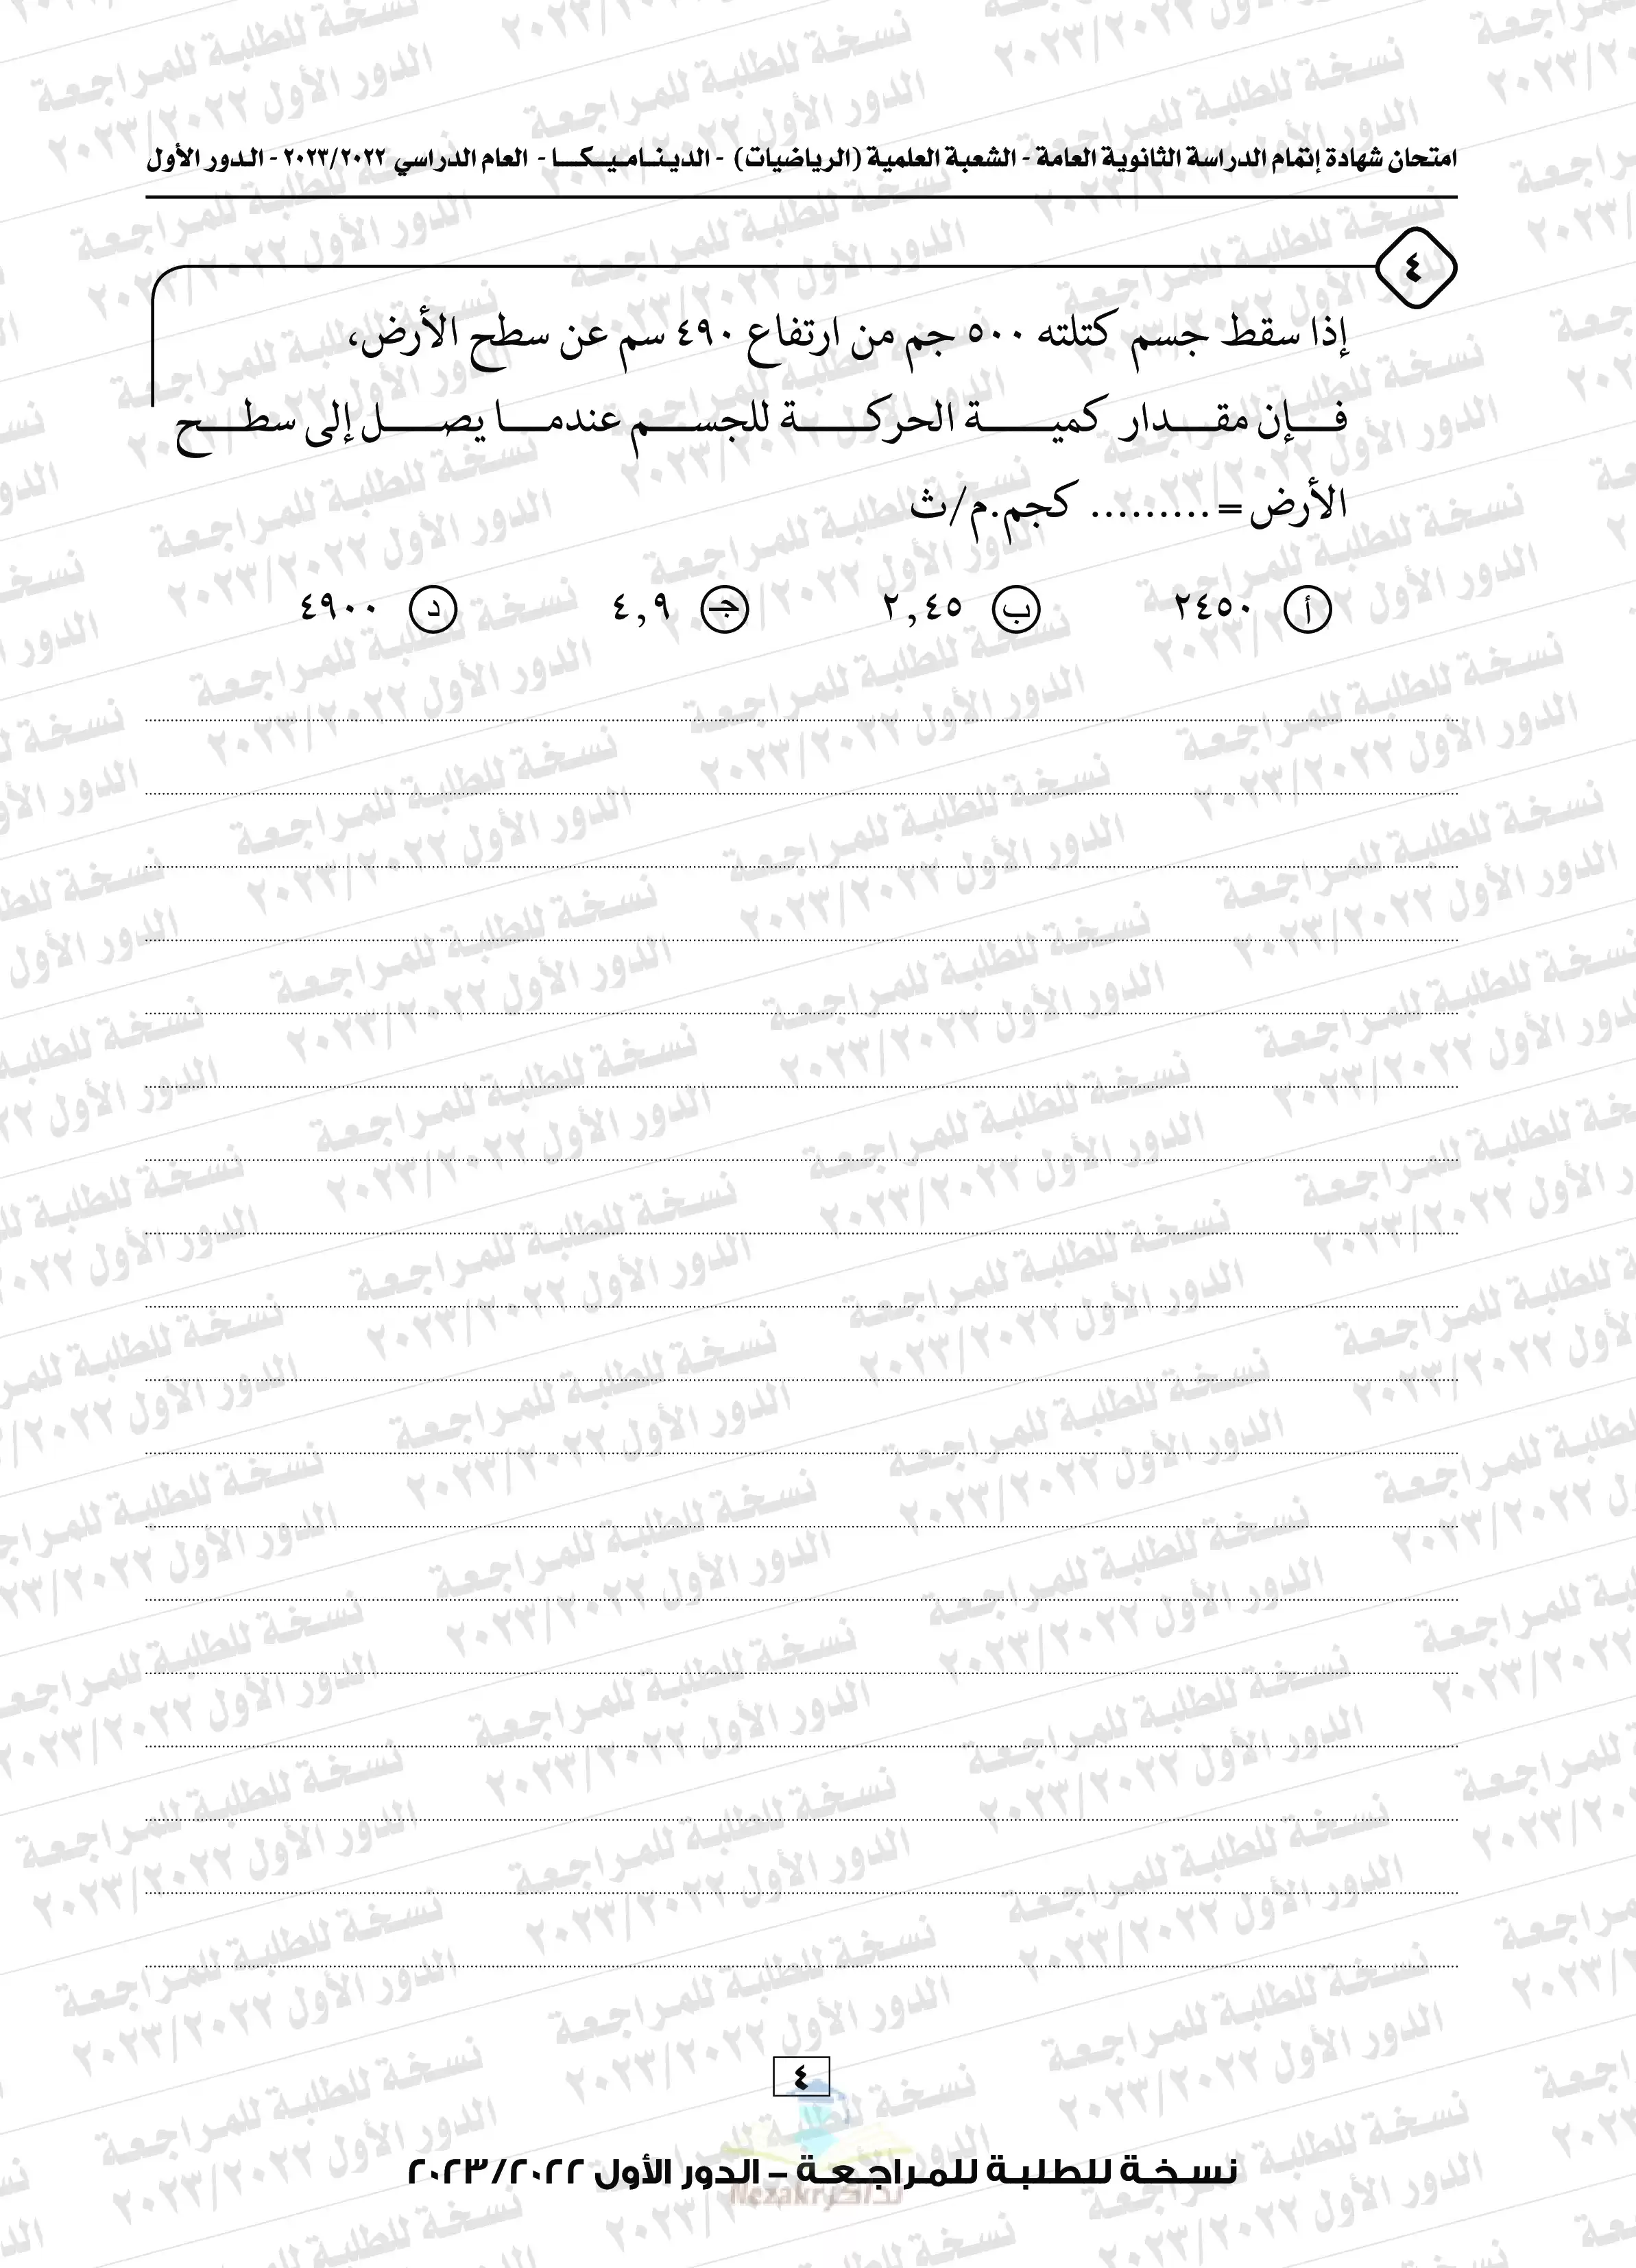 امتحان شهادة إتمام الدراسة الثانوية العامة - الشعبة العلمية (الرياضيات) - الديناميكا - العام الدراسي ٢٠٢٣/٢٠٢٢ - الدور الأول
٤
إذا سقط جسم كتلته ٥٠٠ جم من ارتفاع ٤٩٠ سم عن سطح الأرض،
فإن مقدار كمية الحركة للجسم عندما يصل إلى سطح
الأرض = ......... كجم.م/ث
أ ٢٤٥٠ ب ٢,٤٥ جـ ٤,٩ د ٤٩٠٠
٤
نسخة للطلبة للمراجعة – الدور الأول ٢٠٢٣/٢٠٢٢
Nezakr نذاكر
نسخة للطلبة للمراجعة
الدور الأول ٢٠٢٣/٢٠٢٢